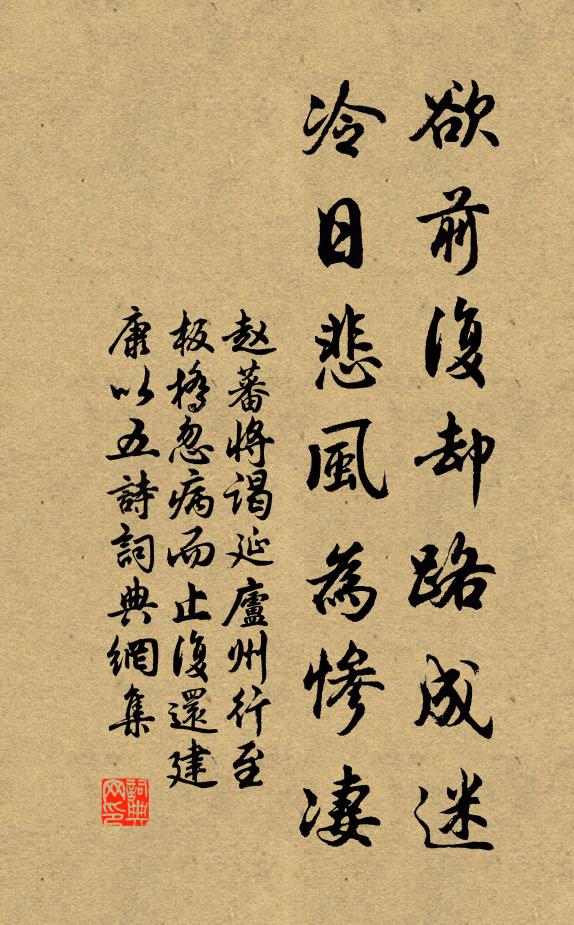 欲前復却路成迷
冷日悲風為慘凄
赵蕃将谒延廬州行至
板橋忽病而止復還建
康以五詩詞典網集
詞典网印